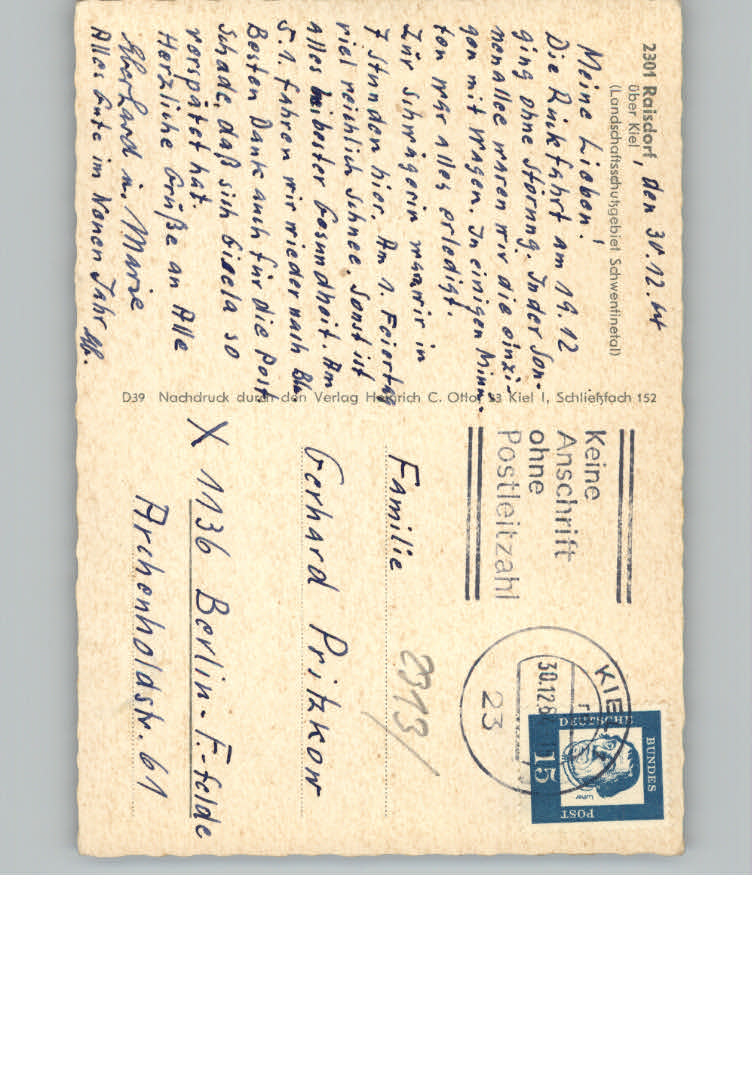 2301 Raisdorf, den 30.12.64
über Kiel
(Landschaftsschutzgebiet Schwentinetal)
Meine Lieben!
Die Rückfahrt am 19.12
ging ohne Störung. In der Son-
nenallee waren wir die einzi-
gen mit Wagen. In einigen Minu-
ten war alles erledigt.
Zur Schwägerin waren wir in
7 Stunden hier. Am 1. Feiertag
viel reichlich Schnee. Sonst ist
Alles bei bester Gesundheit. Am
5.1. fahren wir wieder nach Bln.
Besten Dank auch für die Post
Schade, daß sich Gisela so
verspätet hat.
Herzliche Grüße an Alle
Eberhard u. Marie
Alles Gute im Neuen Jahr
D39 Nachdruck durch den Verlag Heinrich C. Otto, 23 Kiel 1, Schließfach 152
Keine
Anschrift
ohne
Postleitzahl
KIEL
30.12.6
23
DEUTSCHE
BUNDES
POST
15
Luther
2313/
Familie
Gerhard Pritzkow
X 1136 Berlin-F.-felde
Archenholdstr. 61